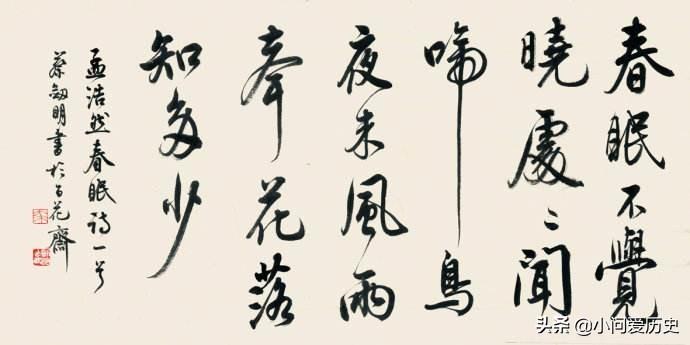 春眠不覺
曉處〻聞
啼鳥
夜来風雨
聲花落
知多少
孟浩然春眠詩一首
蔡劔明書於百花齋
头条 @小问爱历史